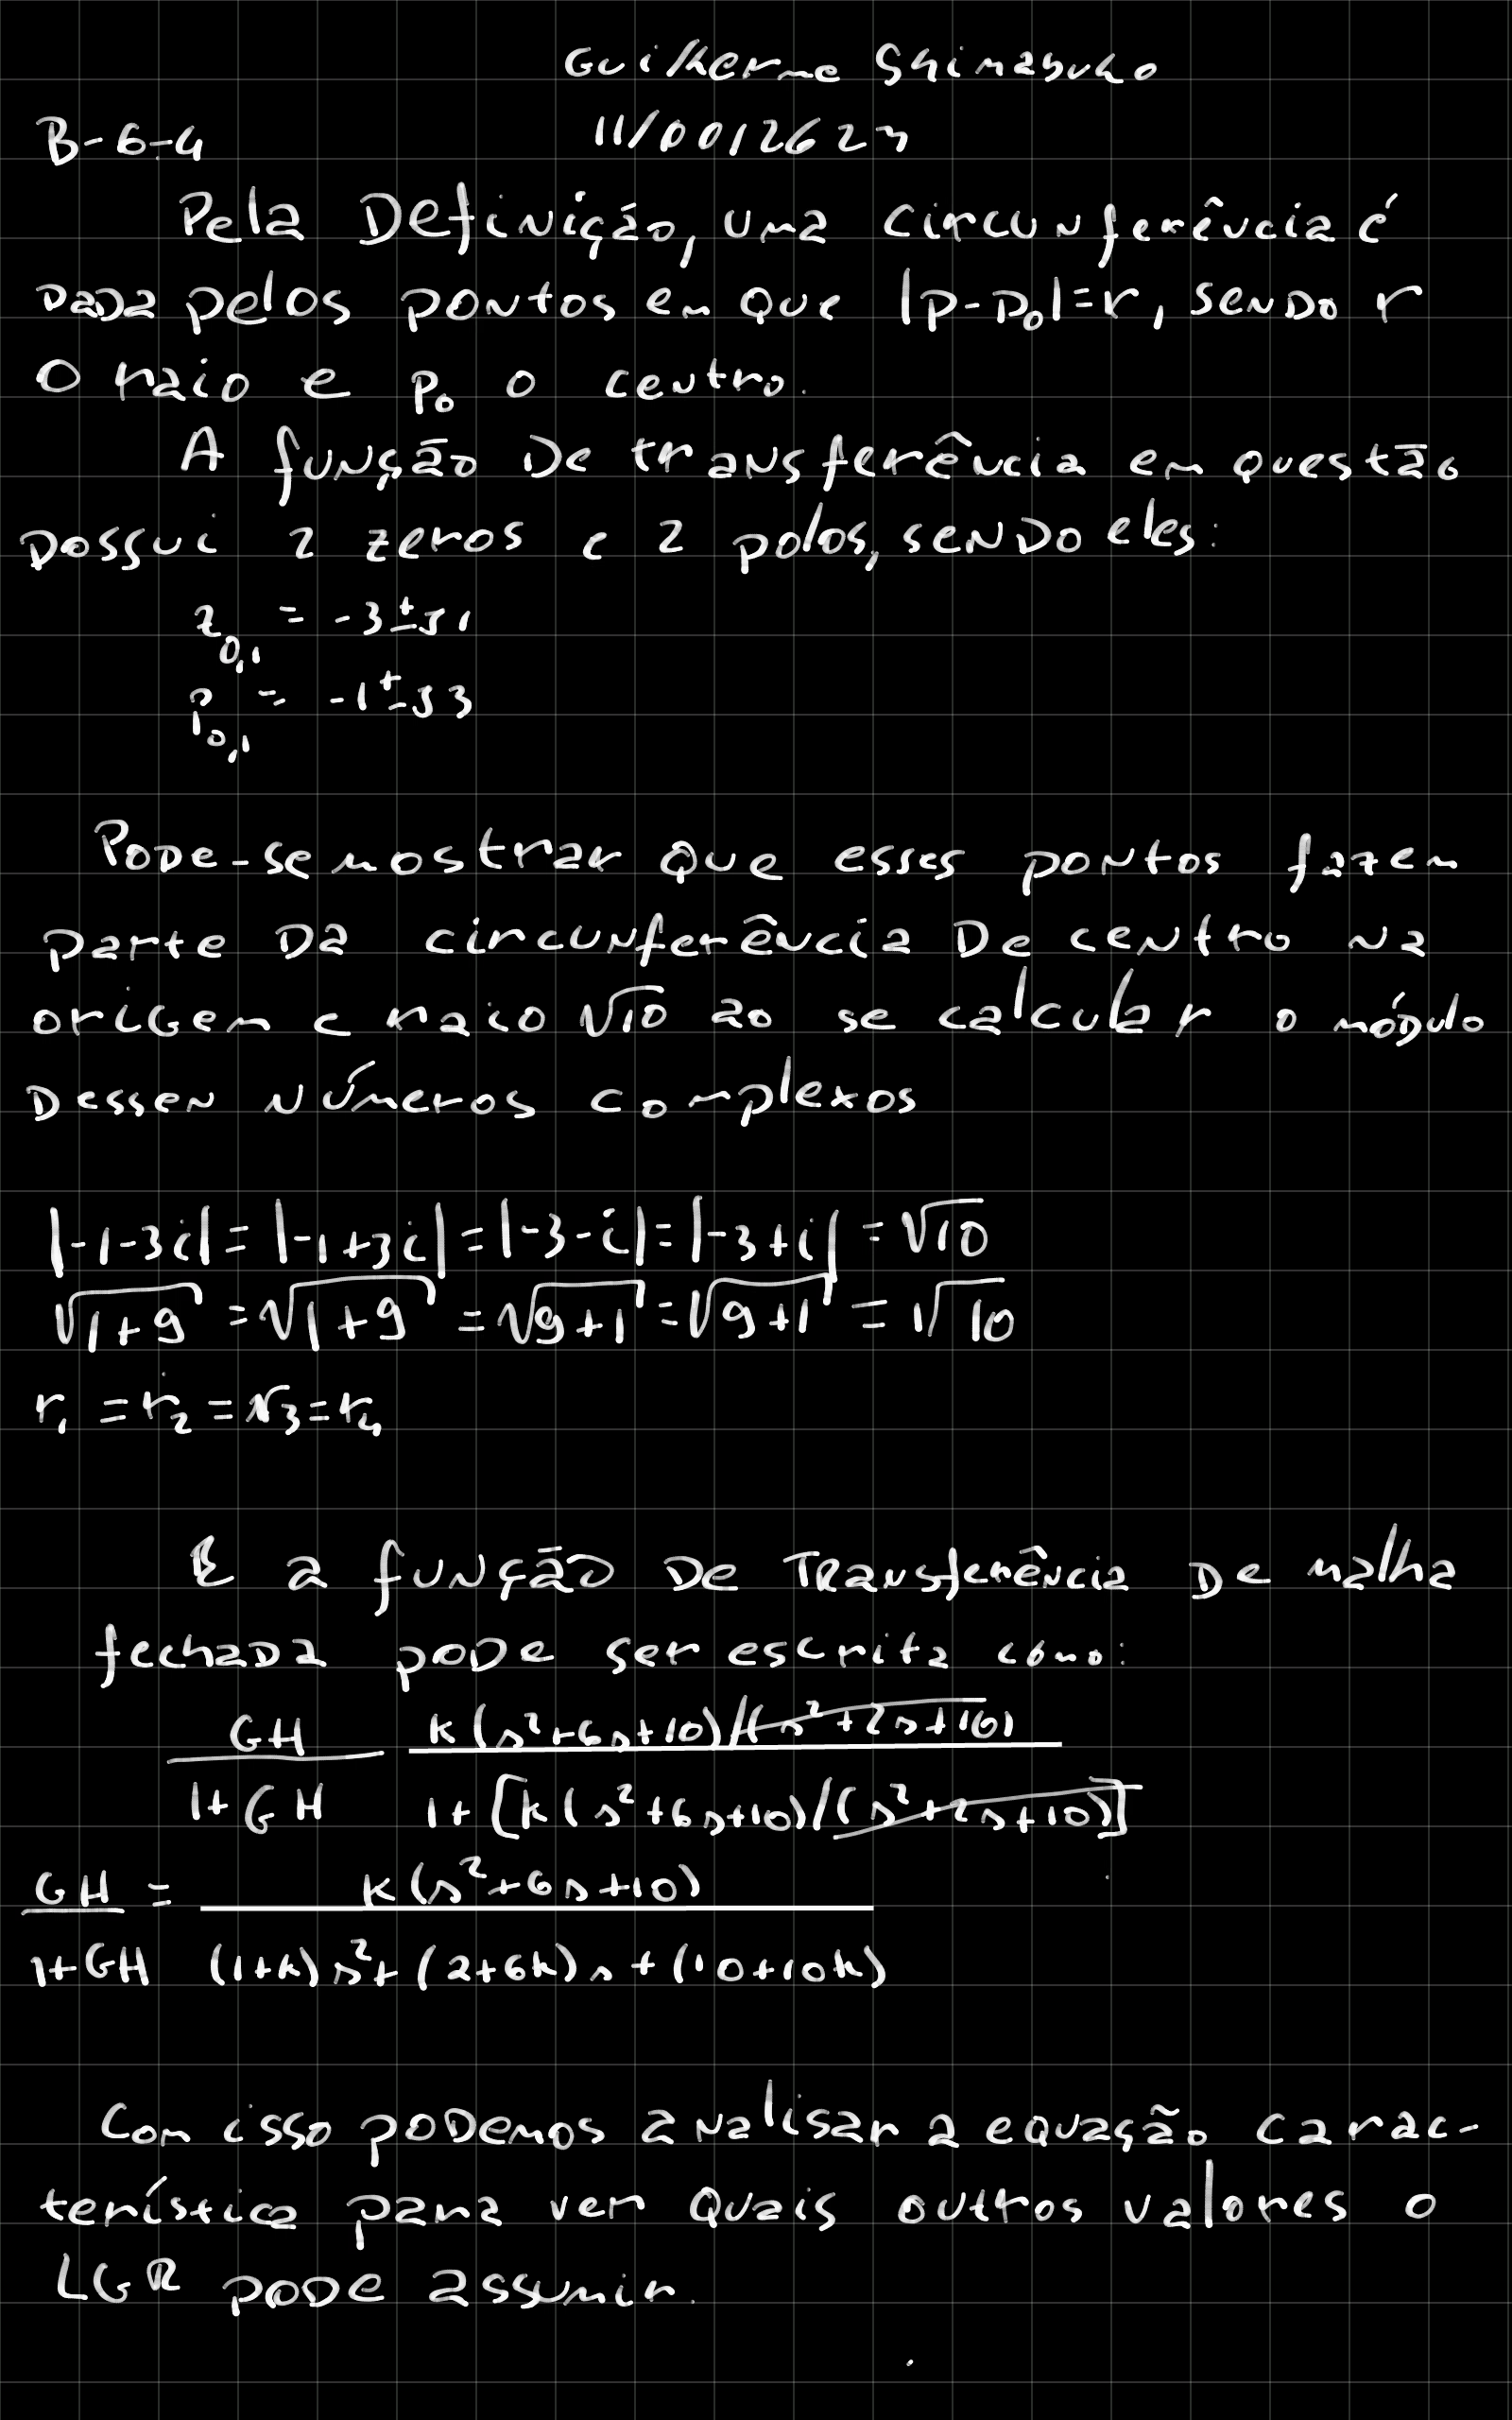 Guilherme Shimabuko
B-6-4 11/0012623
Pela Definição, uma circunferência é
dada pelos pontos em que |p-p₀|=r, sendo r
o raio e p₀ o centro.
A função de transferência em questão
possui 2 zeros e 2 polos, sendo eles:
z₀,₁ = -3±j1
p₀,₁ = -1±j3
Pode-se mostrar que esses pontos fazem
parte da circunferência de centro na
origem e raio √10 ao se calcular o módulo
desses números complexos
|-1-3i| = |-1+3i| = |-3-i| = |-3+i| = √10
√1+9 = √1+9 = √9+1 = √9+1 = √10
r₁ = r₂ = r₃ = r₄
E a função de Transferência de malha
fechada pode ser escrita como:
GH K(s²+6s+10)/(s²+2s+10)
1+GH 1+[K(s²+6s+10)/(s²+2s+10)]
GH = K(s²+6s+10)
1+GH (1+k)s²+(2+6k)s+(10+10k)
Com isso podemos analisar a equação carac-
terística para ver quais outros valores o
LGR pode assumir.